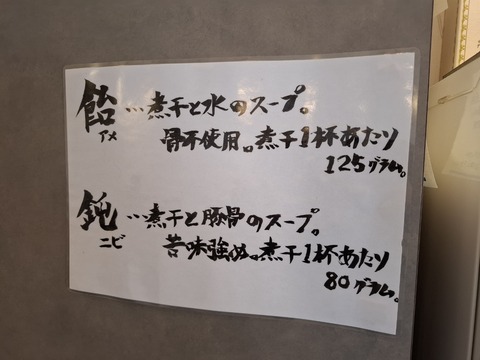 飴…煮干と水のスープ。
アメ
骨不使用。煮干1杯あたり
125グラム。
鈍…煮干と豚骨のスープ。
ニビ
苦味強め。煮干1杯あたり
80グラム。